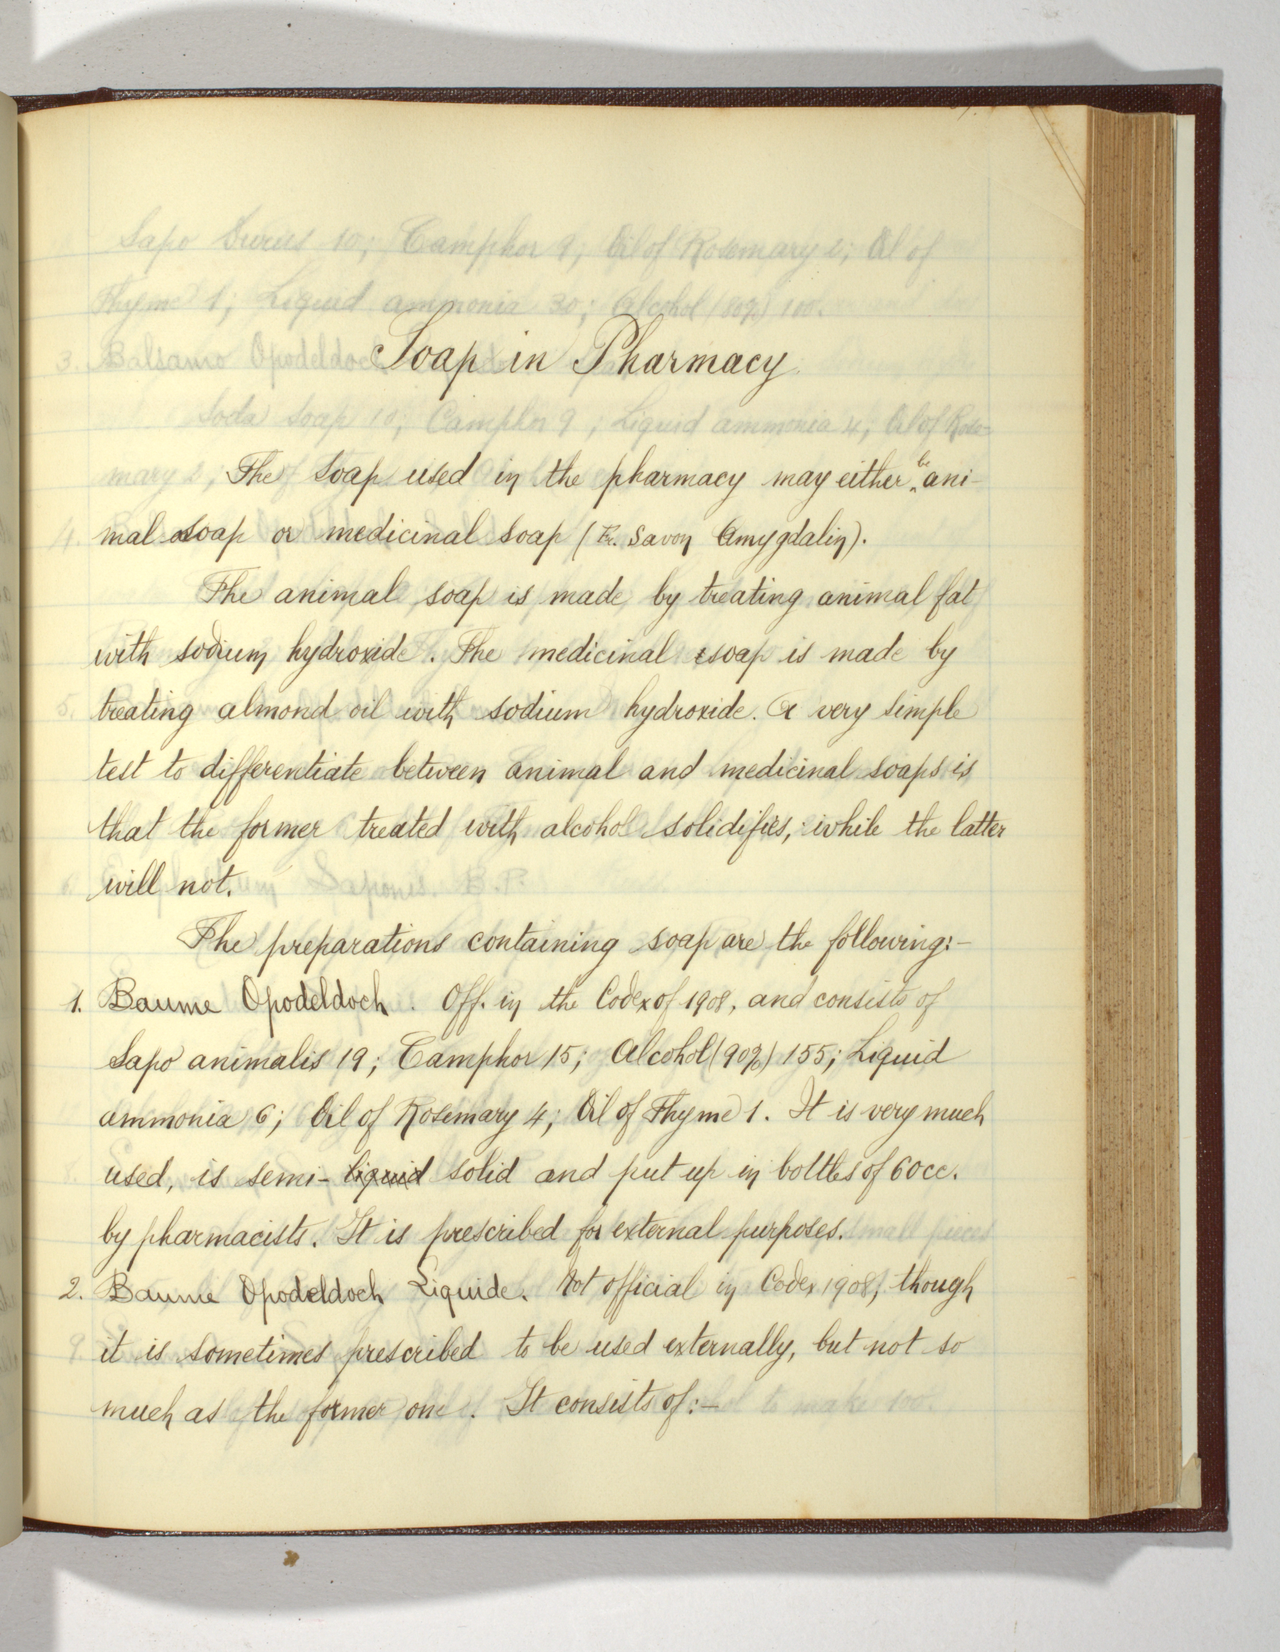 Soap in Pharmacy
The soap used in the pharmacy may either be ani-
mal soap or medicinal soap (Fr. Savon Amygdalin).
The animal soap is made by treating animal fat
with sodium hydroxide. The medicinal soap is made by
treating almond oil with sodium hydroxide. A very simple
test to differentiate between animal and medicinal soaps is
that the former treated with alcohol solidifies, while the latter
will not.
The preparations containing soap are the following:-
1. Baume Opodeldoch. Off. in the Codex of 1908, and consists of
Sapo animalis 19; Camphor 15; Alcohol (90%) 155; Liquid
ammonia 6; Oil of Rosemary 4; Oil of Thyme 1. It is very much
used, is semi-liquid solid and put up in bottles of 60cc.
by pharmacists. It is prescribed for external purposes.
2. Baume Opodeldoch Liquide. Not official in Codex 1908, though
it is sometimes prescribed to be used externally, but not so
much as the former one. It consists of:-